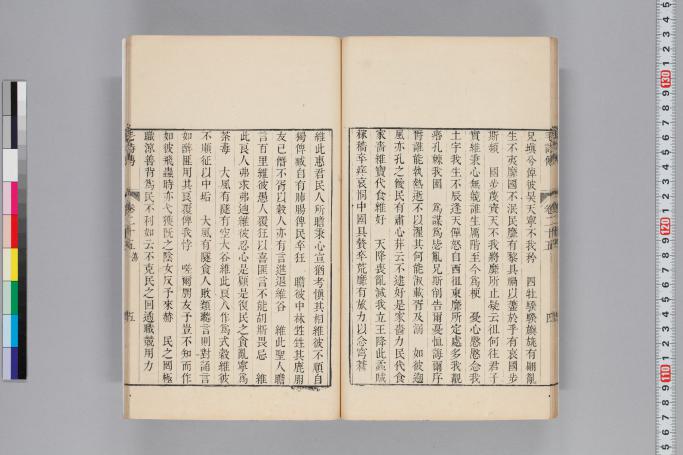 兄塡兮倬彼昊天寧不我矜　四牡騤騤旟旐有翩亂
生不夷靡國不泯民靡有黎具禍以燼於乎有哀國步
斯頻　國步蔑資天不我將靡所止疑云徂何往君子
實維秉心無競誰生厲階至今爲梗　憂心慇慇念我
土宇我生不辰逢天僤怒自西徂東靡所定處多我覯
痻孔棘我圉　爲謀爲毖亂況斯削告爾憂恤誨爾序
爵誰能執熱逝不以濯其何能淑載胥及溺　如彼遡
風亦孔之僾民有肅心荓云不逮好是家嗇力民代食
家嗇維寶代食維好　天降喪亂滅我立王降此蟊賊
稼穡卒痒哀恫中國具贅卒荒靡有旅力以念穹蒼
維此惠君民人所瞻秉心宣猶考愼其相維彼不順自
獨俾臧自有肺腸俾民卒狂　瞻彼中林甡甡其鹿朋
友已僭不胥以穀人亦有言進退維谷　維此聖人瞻
言百里維彼愚人覆狂以喜匪言不能胡斯畏忌　維
此良人弗求弗迪維彼忍心是顧是復民之貪亂寧爲
荼毒　大風有隧有空大谷維此良人作爲式穀維彼
不順征以中垢　大風有隧貪人敗類聽言則對誦言
如醉匪用其良覆俾我悖　嗟爾朋友予豈不知而作
如彼飛蟲時亦弋獲既之陰女反予來赫　民之罔極
職涼善背爲民不利如云不克民之回遹職競用力